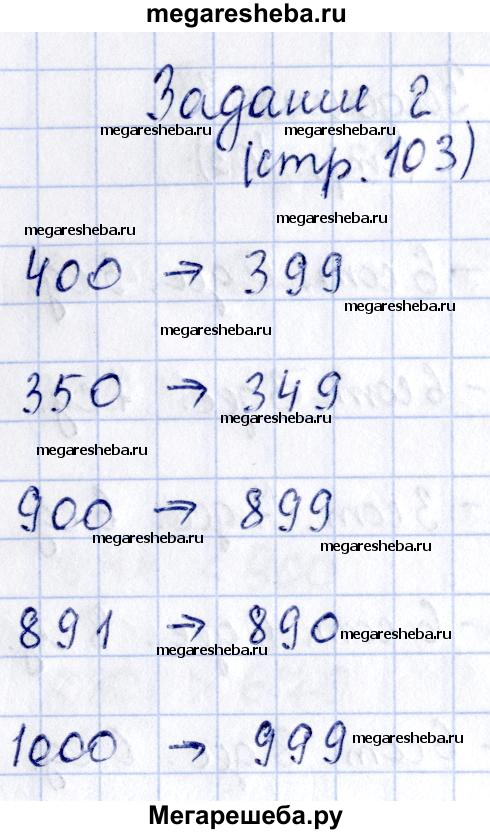 megaresheba.ru
Задание 2
megaresheba.ru megaresheba.ru
(стр. 103)
megaresheba.ru
megaresheba.ru
400 → 399
megaresheba.ru
megaresheba.ru
350 → 349
megaresheba.ru
megaresheba.ru
900 → 899
megaresheba.ru
megaresheba.ru
891 → 890
megaresheba.ru
megaresheba.ru
1000 → 999
megaresheba.ru
Мегарешеба.ру